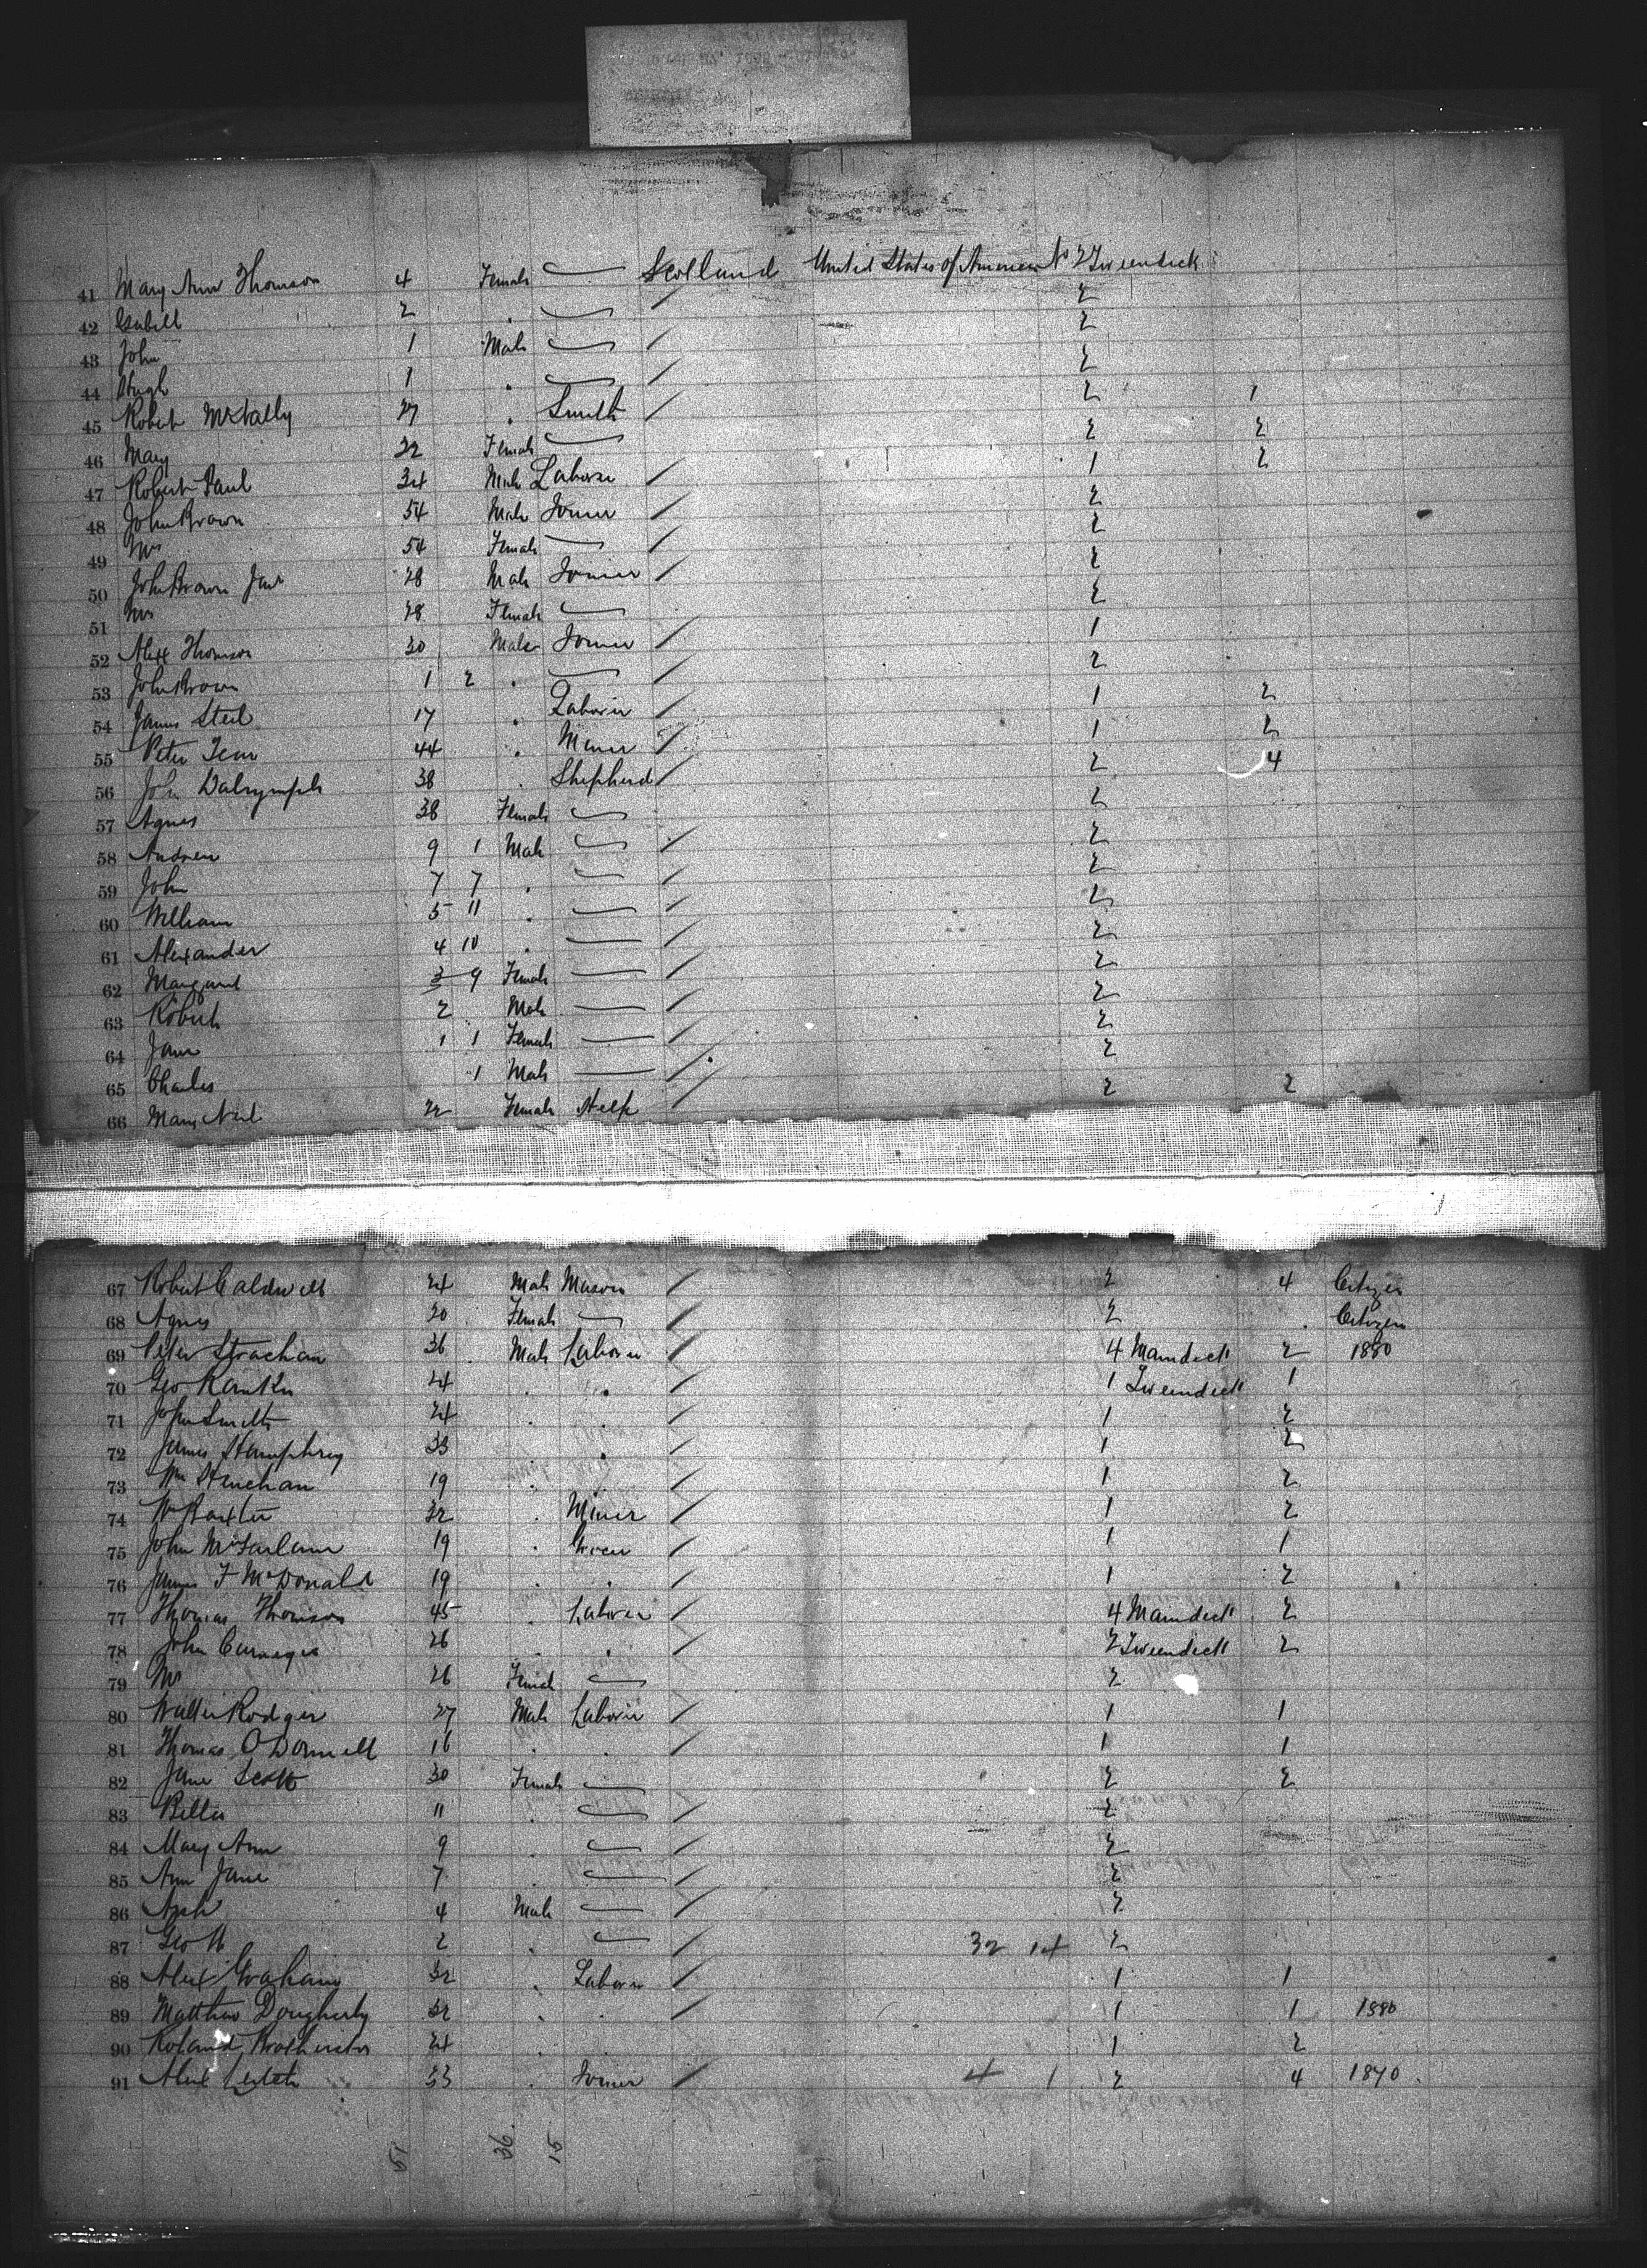 41 Mary Ann Thomson 4 Female Scotland United States of America No 2 Tweendeck
42 Isabell 2 . 2
43 John 1 Male 2
44 Hugh 1 . 2
45 Robert McNally 27 . Smith 2 1
46 Mary 22 Female 2 2
47 Robert Paul 34 Male Laborer 1 2
48 John Brown 54 Male Joiner 2
49 Mrs 54 Female 2
50 John Brown Junr 28 Male Joiner 2
51 Mrs 28 Female 2
52 Alex Thomson 30 Male Joiner 1
53 John Brown 1 2 . 2
54 James Steel 17 . Laborer 1 2
55 Peter 44 . Miner 1 2
56 John Dalrymple 38 . Shepherd 2 4
57 Agnes 38 Female 2
58 Andrew 9 1 Male 2
59 John 7 7 . 2
60 William 5 11 . 2
61 Alexander 4 10 . 2
62 Margaret 3 9 Female 2
63 Robert 2 Male 2
64 Jane 1 1 Female 2
65 Charles 1 Male 2
66 Mary Neil 22 Female Help 2 2
67 Robert Caldwell 24 Male Mason 2 4 Citizen
68 Agnes 20 Female 2 . Citizen
69 Peter Strachan 36 Male Laborer 4 Maindeck 2 1880
70 Geo Rankin 24 . . 1 Tweendeck 1
71 John Smith 24 . . 1 2
72 James Humphrey 33 . . 1 2
73 Wm Strachan 19 . . 1 2
74 Wm Baxter 32 . Miner 1 2
75 John McFarlane 19 . 1 1
76 James F McDonald 19 . . 1 2
77 Thomas Thomson 45 . Laborer 4 Maindeck 2
78 John Carnegie 26 . . 2 Tweendeck 2
79 Mrs 26 Female 2
80 Walter Rodger 27 Male Laborer 1 1
81 Thomas O'Donnell 16 . . 1 1
82 Jane Scott 30 Female 2 2
83 11 . 2
84 Mary Ann 9 . 2
85 Ann Jane 7 . 2
86 Arch 4 Male 2
87 Geo W 2 . 32 14 2
88 Alex Graham 32 . Laborer 1 1
89 Matthew Dougherty 32 . . 1 1 1880
90 Roland Brotherston 24 . . 1 2
91 Alex Leitch 33 . Joiner 4 1 2 4 1870
51 36 15